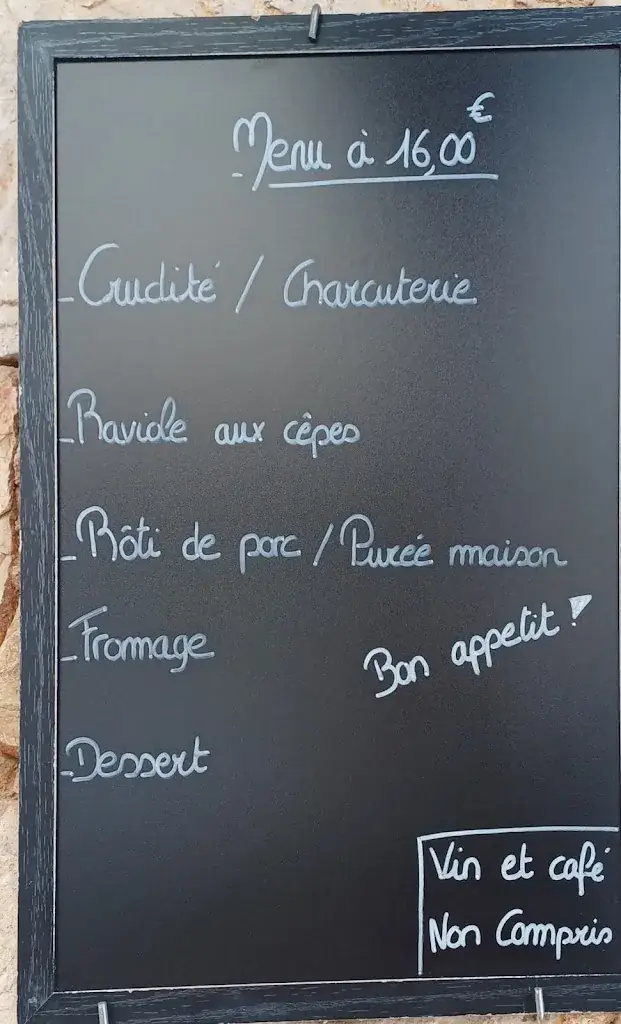 Menu à 16,00€
- Crudité / Charcuterie
- Raviole aux cêpes
- Rôti de porc / Purée maison
- Fromage
Bon appetit !
- Dessert
Vin et café
Non Compris